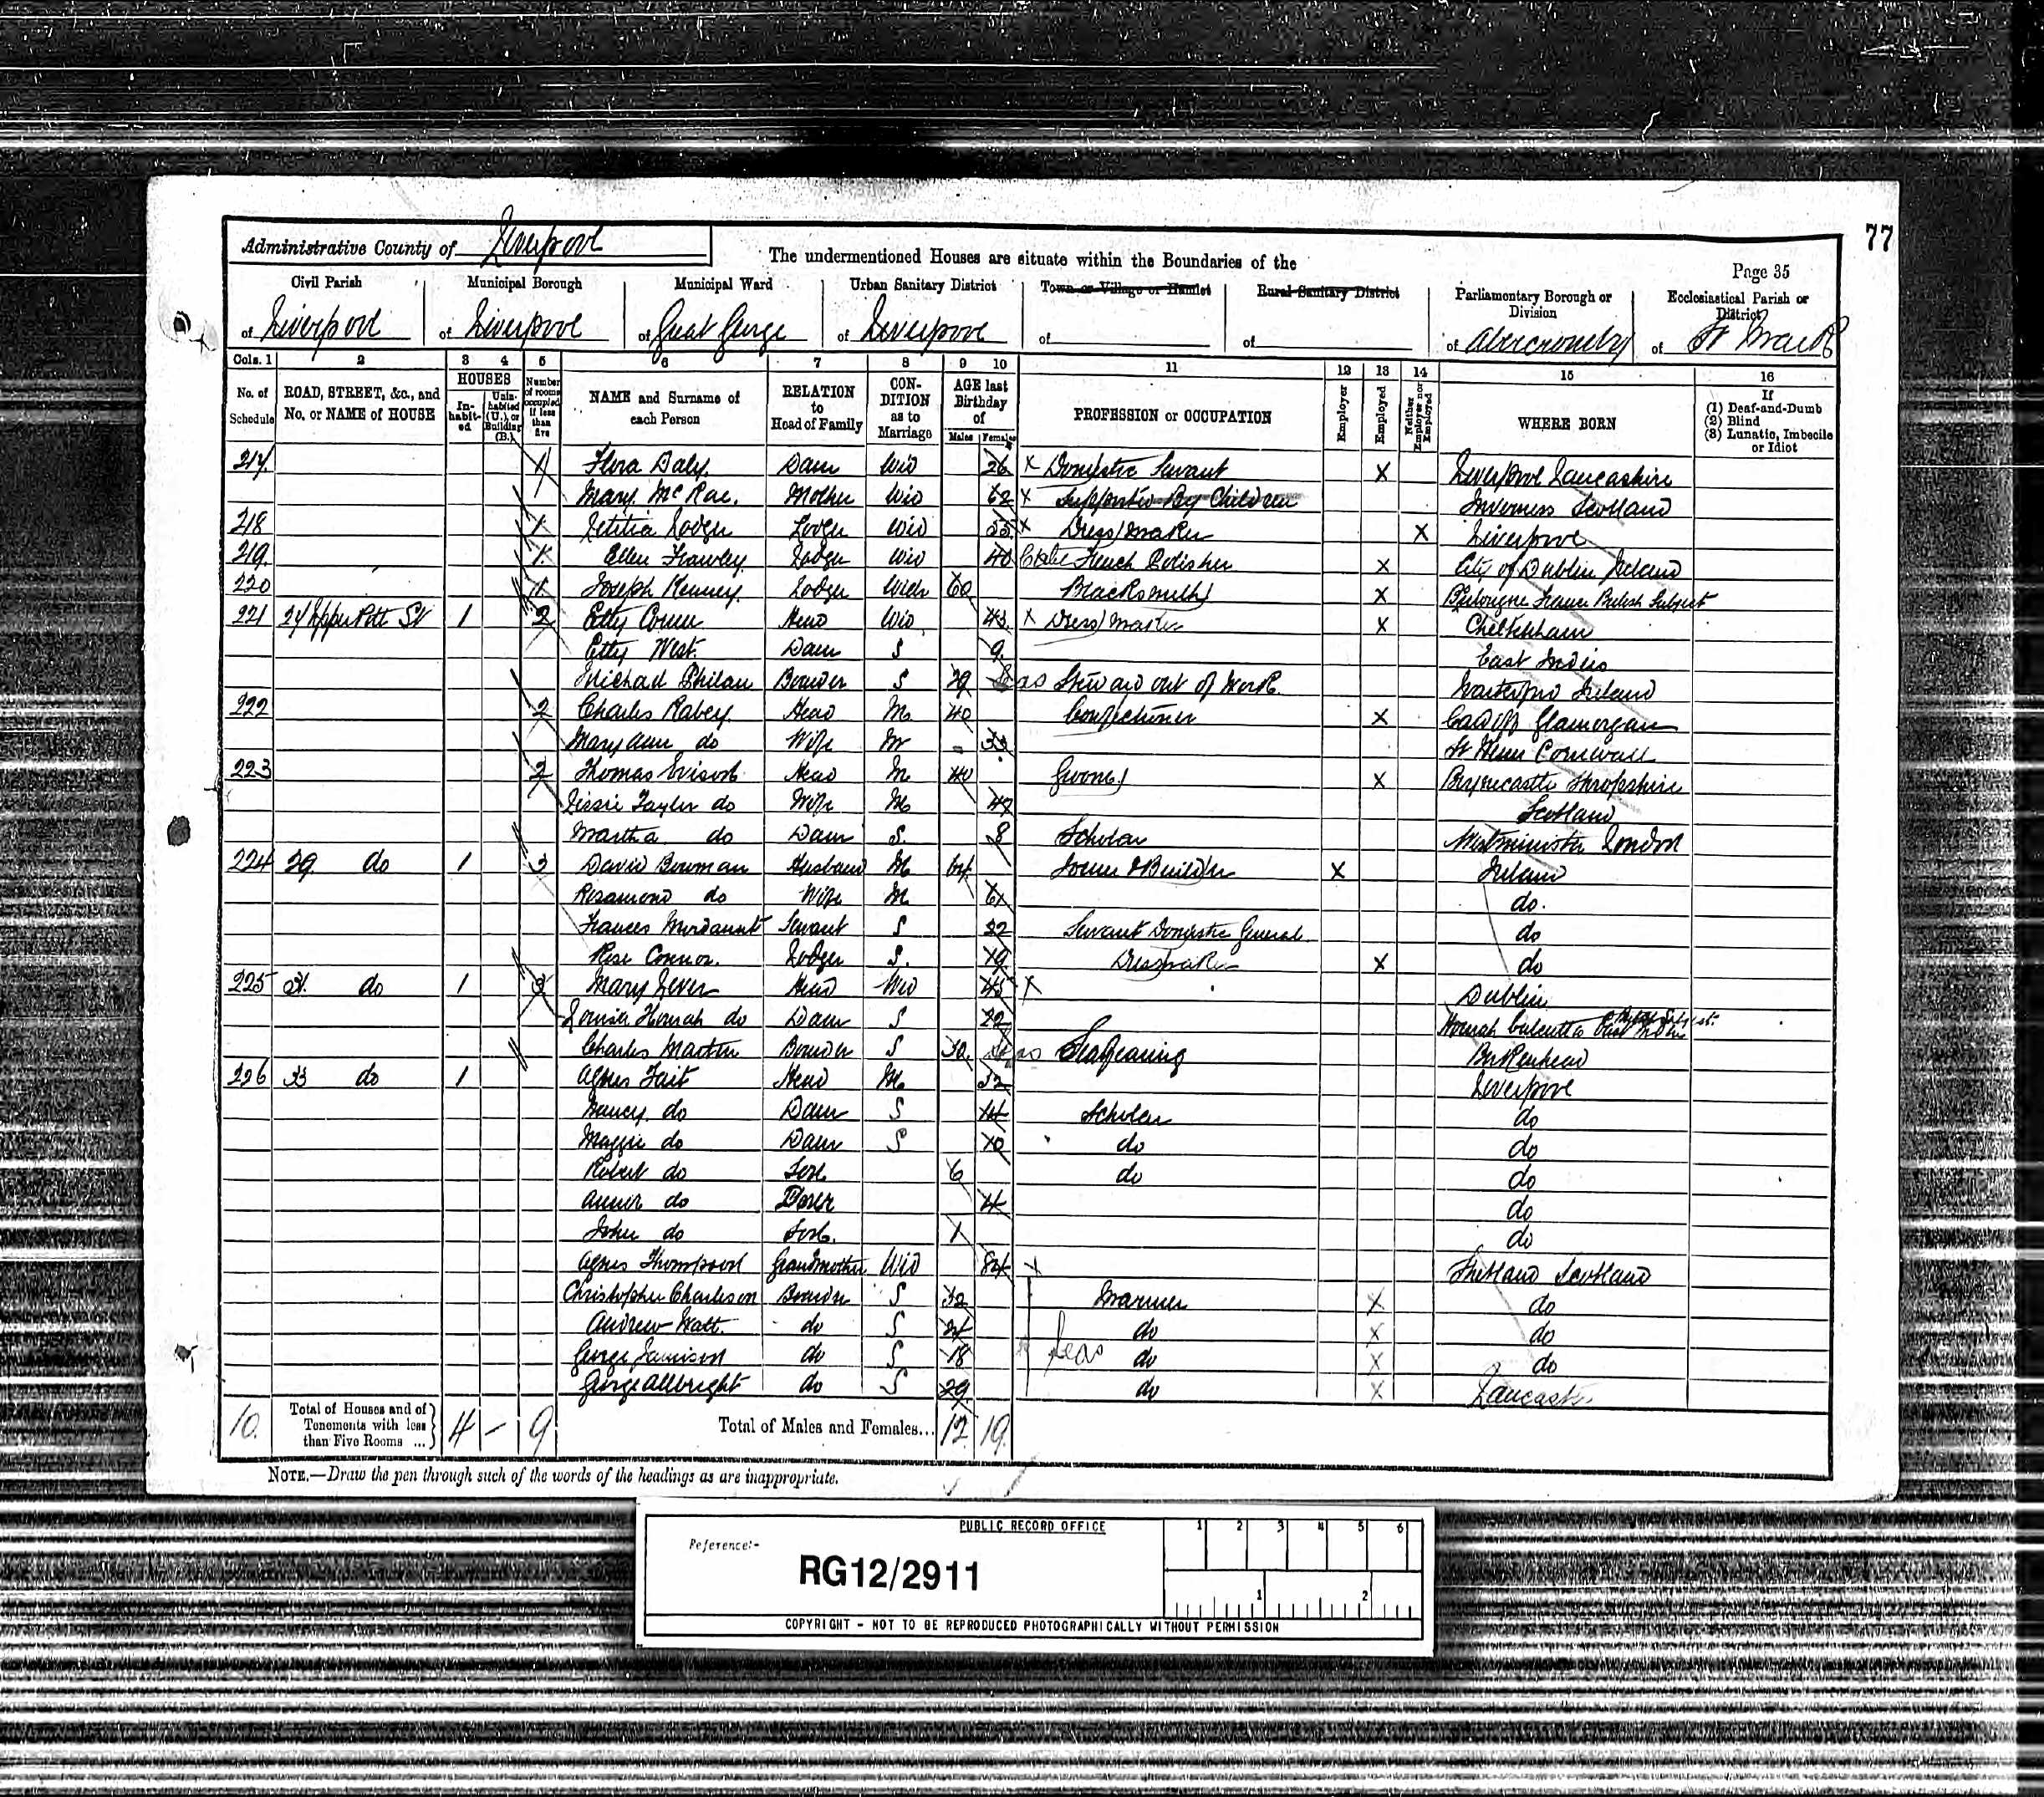 77
Administrative County of Liverpool
The undermentioned Houses are situate within the Boundaries of the
Page 35
Civil Parish Municipal Borough Municipal Ward Urban Sanitary District Town or Village or Hamlet Rural Sanitary District Parliamentary Borough or Division Ecclesiastical Parish or District
of Liverpool of Liverpool of Great George of Liverpool of of of Abercromby of St Mark
Cols. 1 2 3 4 5 6 7 8 9 10 11 12 13 14 15 16
No. of Schedule ROAD, STREET, &c., and No. or NAME of HOUSE HOUSES Inhabited Uninhabited (U.), or Building (B.) Number of rooms occupied if less than five NAME and Surname of each Person RELATION to Head of Family CONDITION as to Marriage AGE last Birthday of Males Females PROFESSION or OCCUPATION Employer Employed Neither Employer nor Employed WHERE BORN If (1) Deaf-and-Dumb (2) Blind (3) Lunatic, Imbecile or Idiot
217 1 Flora Daly Daur Wid 26 X Domestic Servant X Liverpool Lancashire
Mary McRae. Mother Wid 62 X Supported By Children Inverness Scotland
218 1 Letitia Lodger Wid 55 X Dress Maker X Liverpool
219 1 Ellen Frawley Lodger Wid 40 French Polisher X City of Dublin Ireland
220 1 Joseph Kenney Lodger Widr 60 Blacksmith X France British Subject
221 27 Upper Pitt St 1 2 Etty Wid 43 X Dress Maker X Cheltenham
Etty West. Daur S 9 East Indies
Michael Philan Boarder S 29 Seas Steward out of Work Waterford Ireland
222 2 Charles Rabey Head M 40 Confectioner X Cardiff Glamorgan
Mary Ann do Wife M 33 Cornwall
223 2 Thomas Head M 40 Groom X Shropshire
Taylor do Wife M 47 Scotland
Martha do Daur S. 8 Scholar Westminister London
224 29 do 1 3 David Bowman Husband M 64 Joiner & Builder X Ireland
Rosamond do Wife M 61 do.
Frances Servant S 22 Servant Domestic General do
Rose Connor. Lodger S. 19 Dressmaker X do
225 31 do 1 3 Mary Head Wid 45 X Dublin
Louisa Howrah do Daur S 22 Howrah Calcutta East India British Subject.
Charles Martin Boarder S 30 Seas Seafearing Birkenhead
226 33 do 1 Agnes Tait Head M 32 Liverpool
do Daur S 14 Scholar do
Maggie do Daur S 10 do do
Robert do Son 6 do do
do Daur 4 do
John do Son 1 do
Agnes Thompson Grandmother Wid 84 X Shetland Scotland
Christopher Charleson Boarder S 32 Mariner X do
Andrew Watt. do S 24 do X do
George Jamison do S 18 Seas do X do
George Allbright do S 29 do X Lancaster
10. Total of Houses and of Tenements with less than Five Rooms ... 4 – 9 Total of Males and Females... 12 19
NOTE.—Draw the pen through such of the words of the headings as are inappropriate.
PUBLIC RECORD OFFICE
1 2 3 4 5 6
Reference:-
RG12/2911
1 2
COPYRIGHT - NOT TO BE REPRODUCED PHOTOGRAPHICALLY WITHOUT PERMISSION